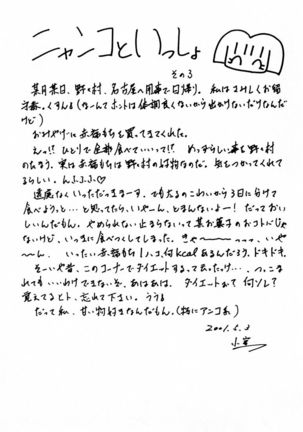 ニャンコといっしょ
その3
某月某日、野々村、名古屋へ用事で日帰り。私はさみしくお留
守番。くすん。(なーんてホントは体調良くないから出かけないだけなんだ
けど)
おみやげに赤福もちを買ってきてくれた。
えっ!? ひとりで全部食べていいって!? めっずらしい事を野々村
のたまう。実は赤福もちは野々村の好物なのだ。気をつかってくれて
るらしい。んふふふ♡
遠慮なくいっただっきまーす、でも太るのこわいから3日に分けて
食べようっと…と思ってたら、いやーん、とまんないよー! だっておい
しいんだもん。やめられない止まらないって某お菓子のおコトバじゃ
ないけど、いっきに食べつくしてしまった。きゃ〜〜〜〜ッッッ、いや
〜ん、いったい赤福もち1ヶ何kcalあるんだろう。ドキドキ。
そーいや昔、このコーナーでダイエットするって言ったっけ…。つっこま
れてもいいわけできないぞ。あはあは。ダイエットぉ?何ソレ?
覚えてるヒト、忘れて下さい。ううる
だって私、甘い物好きなんだもん。(特にアンコ系)
2001.6.3